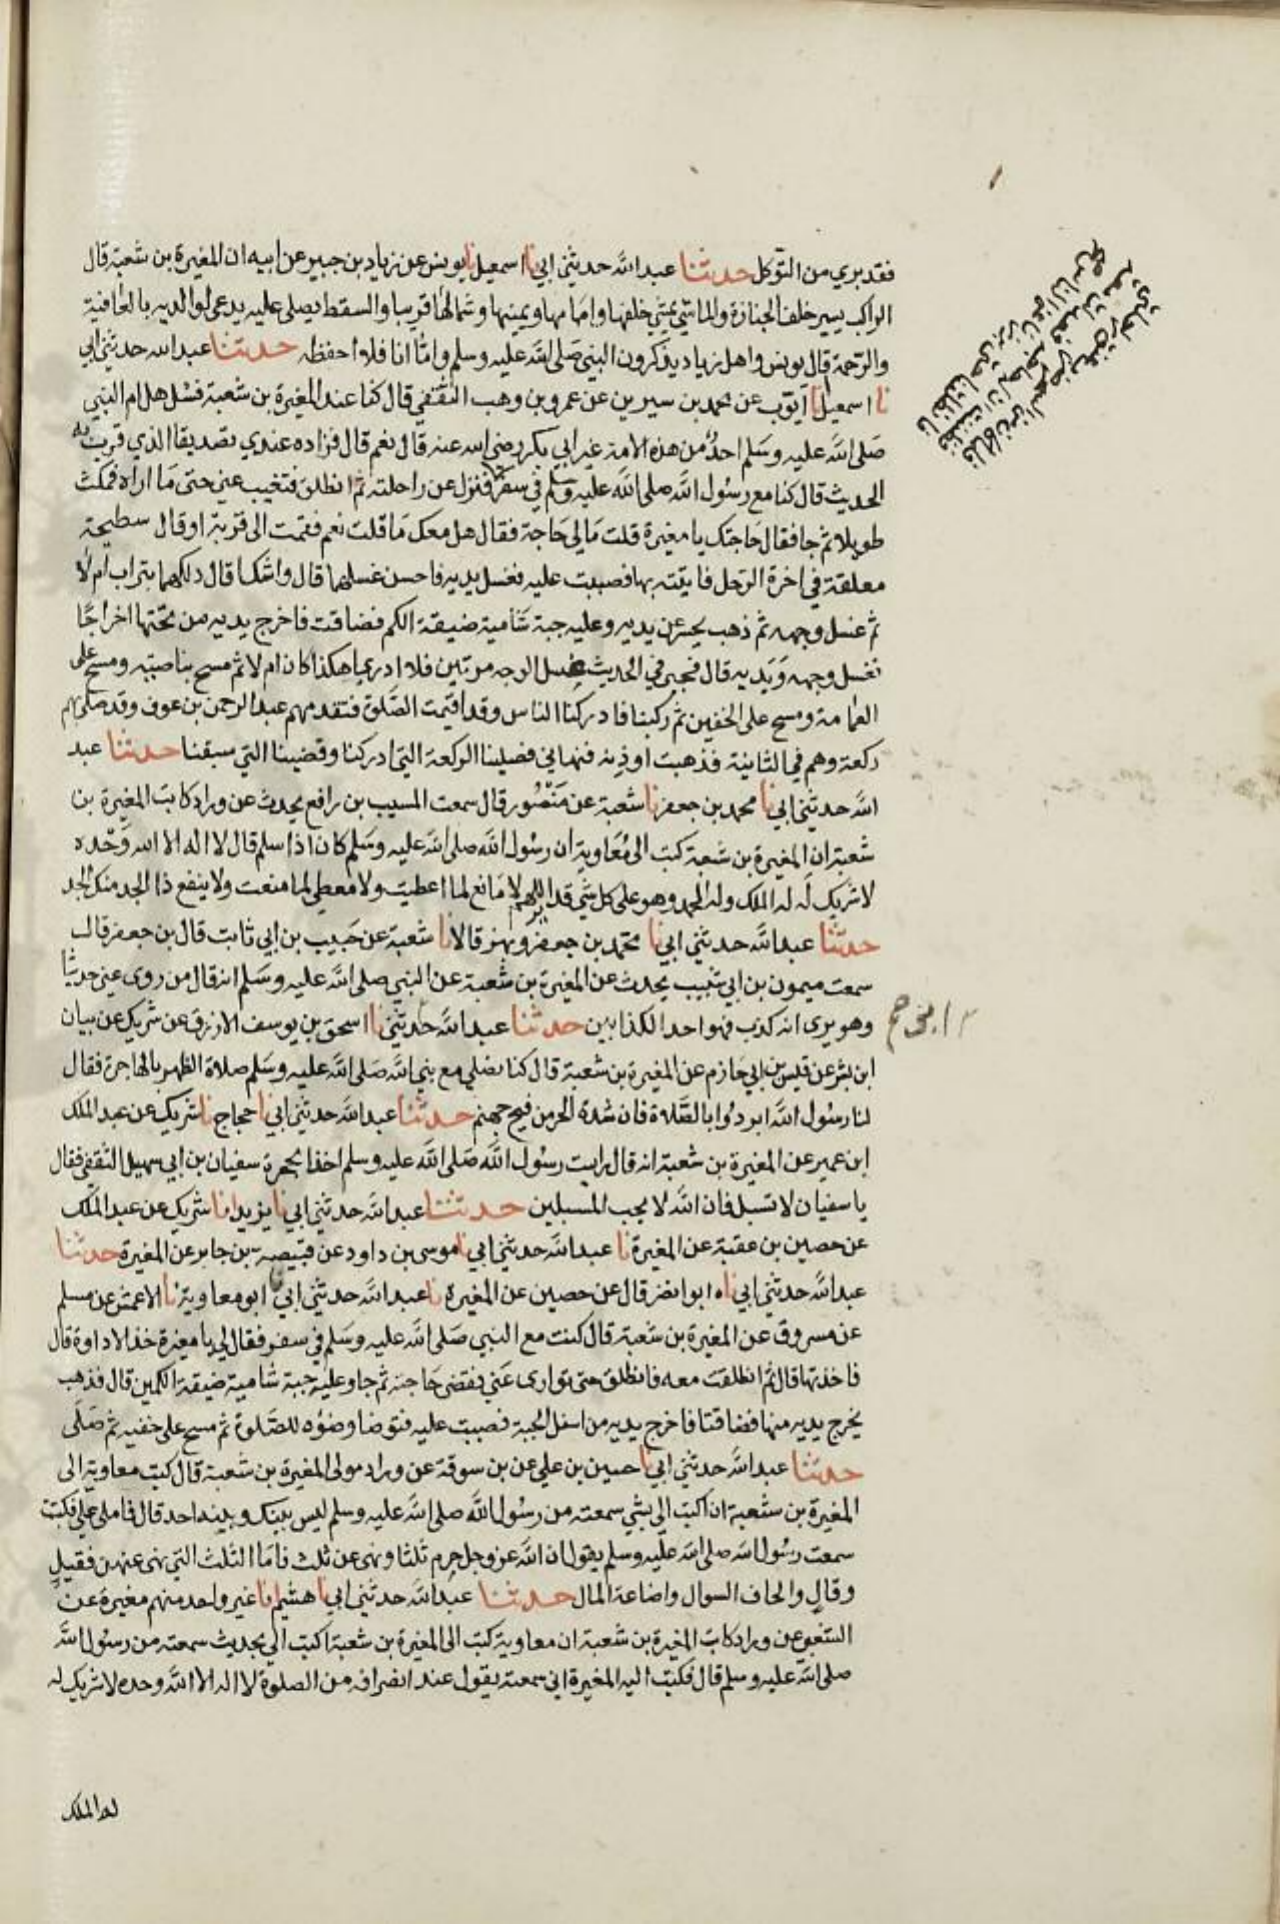 فقد بري من التوكل حدثنا عبد الله حدثني ابي نا اسمعيل نا يونس عن زياد بن جبير عن ابيه ان المغيرة بن شعبة قال
الراكب يسير خلف الجنازة والماشي يمشي خلفها وامامها ويمينها وشمالها قريبا والسقط يصلى عليه يدعى لوالديه بالعافية
والرحمة قال يونس واهل زياد يذكرون النبي صلى الله عليه وسلم واما انا فلا احفظه حدثنا عبد الله حدثني ابي
نا اسمعيل نا ايوب عن محمد بن سيرين عن عمرو بن وهب الثقفي قال كنا عند المغيرة بن شعبة فسئل هل ام النبي
صلى الله عليه وسلم احد من هذه الامة غير ابي بكر رضي الله عنه قال نعم قال فزاده عندي تصديقا الذي قرب به
الحديث قال كنا مع رسول الله صلى الله عليه وسلم في سفر فنزل عن راحلته ثم انطلق فتغيب عني حتى ما اراه فمكث
طويلا ثم جا فقال حاجتك يا مغيرة قلت مالي حاجة فقال هل معك ما قلت نعم فقمت الى قربة او قال سطيحة
معلقة في اخرة الرحل فاتيته بها فصببت عليه فغسل يديه فاحسن غسلهما قال واشك اقال دلكهما بتراب ام لا
ثم غسل وجهه ثم ذهب يحسر عن يديه وعليه جبة شامية ضيقة الكم فضاقت فاخرج يديه من تحتها اخراجا
فغسل وجهه ويديه قال فيجي في الحديث غسل الوجه مرتين فلا ادري اهكذا كان ام لا ثم مسح بناصيته ومسح على
العمامة ومسح على الخفين ثم ركبنا فادركنا الناس وقد اقيمت الصلوة فتقدمهم عبد الرحمن بن عوف وقد صلى بهم
ركعة وهم في الثانية فذهبت اوذنه فنهاني فصلينا الركعة التي ادركنا وقضينا التي سبقنا حدثنا عبد
الله حدثني ابي نا محمد بن جعفر نا شعبة عن منصور قال سمعت المسيب بن رافع يحدث عن وراد كاتب المغيرة بن
شعبة ان المغيرة بن شعبة كتب الى معاوية ان رسول الله صلى الله عليه وسلم كان اذا سلم قال لا اله الا الله وحده
لا شريك له له الملك وله الحمد وهو على كل شي قدير اللهم لا مانع لما اعطيت ولا معطي لما منعت ولا ينفع ذا الجد منك الجد
حدثنا عبد الله حدثني ابي نا محمد بن جعفر وبهز قالا نا شعبة عن حبيب بن ابي ثابت قال بن جعفر قال
سمعت ميمون بن ابي شبيب يحدث عن المغيرة بن شعبة عن النبي صلى الله عليه وسلم انه قال من روى عني حديثا
وهو يرى انه كذب فهو احد الكذابين حدثنا عبد الله حدثني نا اسحق بن يوسف الازرق عن شريك عن بيان
ابن بشر عن قيس بن ابي حازم عن المغيرة بن شعبة قال كنا نصلي مع نبي الله صلى الله عليه وسلم صلاة الظهر بالهاجرة فقال
لنا رسول الله ابردوا بالصلاة فان شدة الحر من فيح جهنم حدثنا عبد الله حدثني ابي نا حجاج نا شريك عن عبد الملك
ابن عمير عن المغيرة بن شعبة انه قال رايت رسول الله صلى الله عليه وسلم اخذا بحجزة سفيان بن ابي سهيل الثقفي فقال
يا سفيان لا تسبل فان الله لا يحب المسبلين حدثنا عبد الله حدثني ابي نا يزيد انا شريك عن عبد الملك
عن حصين بن عقبة عن المغيرة نا عبد الله حدثني ابي نا موسى بن داود عن قبيصة بن جابر عن المغيرة حدثنا
عبد الله حدثني ابي نا ابو النضر قال عن حصين عن المغيرة نا عبد الله حدثني ابي نا ابو معاوية نا الاعمش عن مسلم
عن مسروق عن المغيرة بن شعبة قال كنت مع النبي صلى الله عليه وسلم في سفر فقال لي يا مغيرة خذ الاداوة قال
فاخذتها قال ثم انطلقت معه فانطلق حتى توارى عني فقضى حاجته ثم جا وعليه جبة شامية ضيقة الكمين قال فذهب
يخرج يديه منها فضاقتا فاخرج يديه من اسفل الجبة فصببت عليه فتوضا وضوه للصلوة ثم مسح على خفيه ثم صلى
حدثنا عبد الله حدثني ابي نا حسين بن علي عن بن سوقة عن وراد مولى المغيرة بن شعبة قال كتب معاوية الى
المغيرة بن شعبة ان اكتب الي بشي سمعته من رسول الله صلى الله عليه وسلم ليس بينك وبينه احد قال فاملى علي فكتبت
سمعت رسول الله صلى الله عليه وسلم يقول ان الله عز وجل حرم ثلثا ونهى عن ثلث فاما الثلث التي نهى عنهن فقيل
وقال والحاف السوال واضاعة المال حدثنا عبد الله حدثني ابي نا هشيم انا غير واحد منهم مغيرة عن
الشعبي عن وراد كاتب المغيرة بن شعبة ان معاوية كتب الى المغيرة بن شعبة اكتب الي بحديث سمعته من رسول الله
صلى الله عليه وسلم قال فكتب اليه المغيرة اني سمعته يقول عند انصرافه من الصلوة لا اله الا الله وحده لا شريك له
له الملك